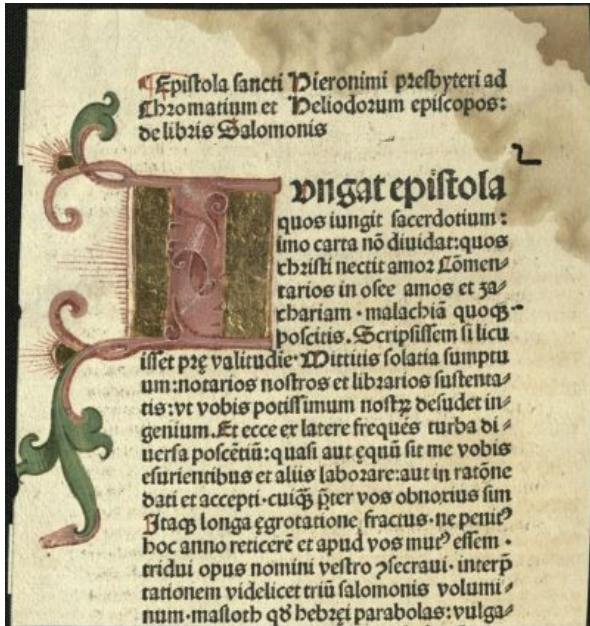 Epistola sancti Hieronimi presbyteri ad
Chromatium et Heliodorum episcopos:
de libris Salomonis
Iungat epistola
quos iungit sacerdotium:
imo carta nō diuidat:quos
christi nectit amor Cōmen⸗
tarios in osee amos et za⸗
chariam · malachiā quoqꝫ
poscitis. Scripsissem si licu
isset prę valitudie· Mittitis solatia sumptu
um:notarios nostros et librarios sustenta⸗
tis:vt vobis potissimum nostꝝ desudet in⸗
genium. Et ecce ex latere frequēs turba di⸗
uersa poscētiū:quasi aut ęquū sit me vobis
esurientibus et aliis laborare:aut in ratōne
dati et accepti·cuiqꝫ p̄ter vos obnoxius sim
Itaqꝫ longa ęgrotatione fractus·ne penitꝰ
hoc anno reticerē et apud vos mutꝰ essem ·
tridui opus nomini vestro ꝯsecraui· interp̄
tationem videlicet triū salomonis volumi⸗
num·masloth qđ hebręi parabolas:vulga⸗